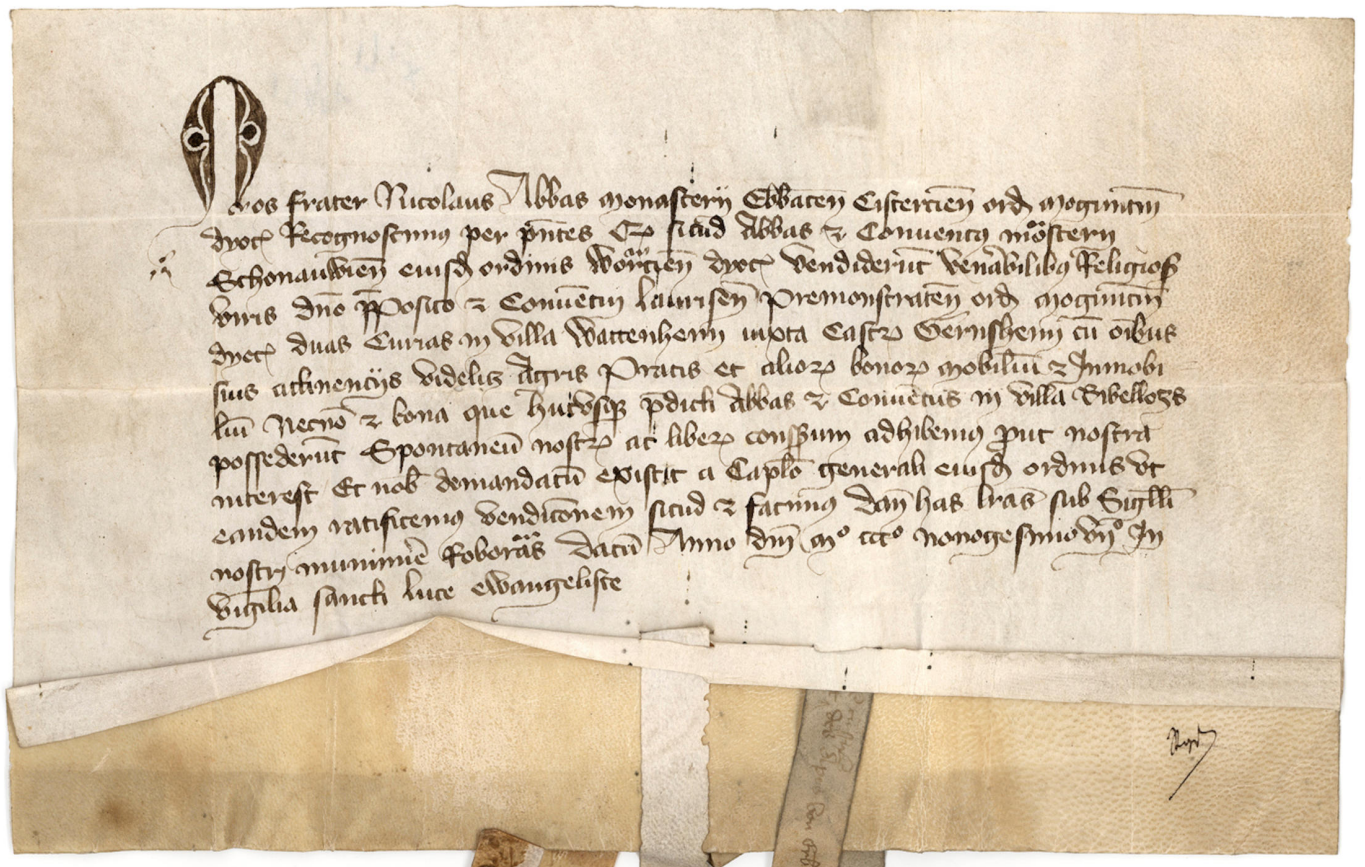 Nos frater Nicolaus Abbas monasterij Ebbacen̄ Cistercien̄ ord̄ moguntin̄
dyoc̄ Recognoscimus per p̄ntes Q sicud Abbas et Conuentus mōsterij
Schonauwien̄ eiusd̄ ordinis Wormacien̄ dyoc̄ vendiderūt venerabilibus Religiosis
viris dn̄o p̄posito et Conuētui Laurisen̄ premonstraten̄ ord̄ mogūtin̄
dyoc̄ duas Curias in villa Wattenheim iuxta Castrꝝ Gernsheim cū oībus
suis attinencijs videlicꝫ Agris Pratis et alioꝝ bonoꝝ mobiliū et Inmobi
liū Necnō et bona que hucusqꝫ p̄dicti Abbas et Conuētus in villa
possederūt Spontaneū nostrꝝ ac liberꝝ consensum adhibemus p̄ut nostra
interest Et nob̄ demandatū existit a Cap̄lo generali eiusd̄ ordinis vt
eandem ratificemus vendic̄onem sicud et facimus dan̄ has lr̄as sub Sigilli
nostri munimīe Roboratas datū Anno dn̄i mᵒ cccᵒ nonogesimo vijᵒ In
vigilia sancti Luce ewangeliste